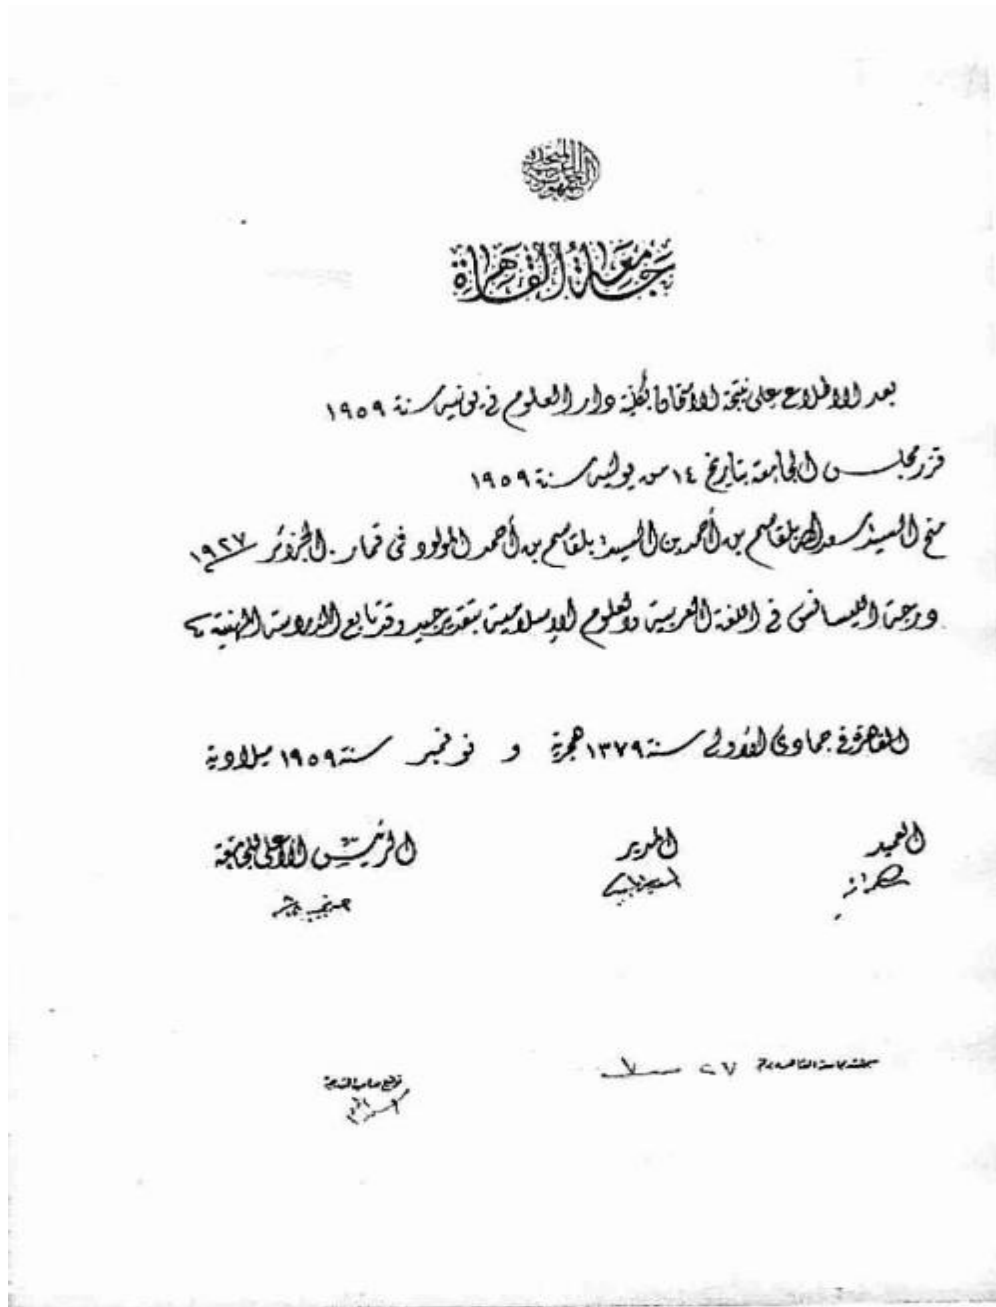 الجمهورية العربية المتحدة
جامعة القاهرة
بعد الاطلاع على نتيجة الامتحان بكلية دار العلوم في يونيه سنة ١٩٥٩
قرر مجلس الجامعة بتاريخ ١٤ من يوليه سنة ١٩٥٩
منح السيد سعد الله بلقاسم بن أحمد بن السيد بلقاسم بن أحمد المولود في قمار. الجزائر ١٩٢٧
درجة الليسانس في اللغة العربية والعلوم الإسلامية بتقدير جيد وقد تابع الدراسة المهنية
القاهرة في جمادى الأولى سنة ١٣٧٩ هجرية و نوفمبر سنة ١٩٥٩ ميلادية
العميد المدير الرئيس الأعلى للجامعة
سجلت بجامعة القاهرة برقم ٢٧
توقيع صاحب الشهادة